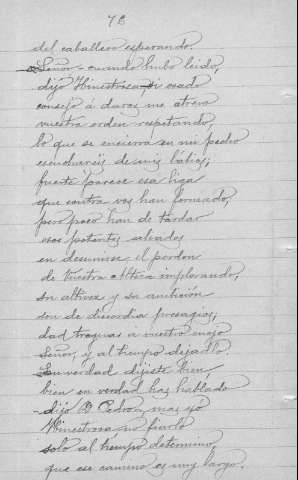 78
del caballero esperando.
-Señor- cuando hubo leido,
dijo Hinestrosa, si osado
consejo á daros me atrevo
vuestra orden respetando,
lo que se encierra en mi pecho
escuchareis de mis labios;
fuerte parece esa liga
que contra vos han formado,
pero poco han de tardar
esos potentes aliados
en desunirse el perdon
de Vuestra Alteza implorando,
su altivez y su ambicion
son de discordia presagios;
dad treguas á vuestro enojo
Señor, y al tiempo dejadlo.
-En verdad dijiste bien
bien en verdad has hablado
-dijo D. Pedro, mas yó
Hinestrosa no fiarlo
solo al tiempo determino,
que ese camino es muy largo.